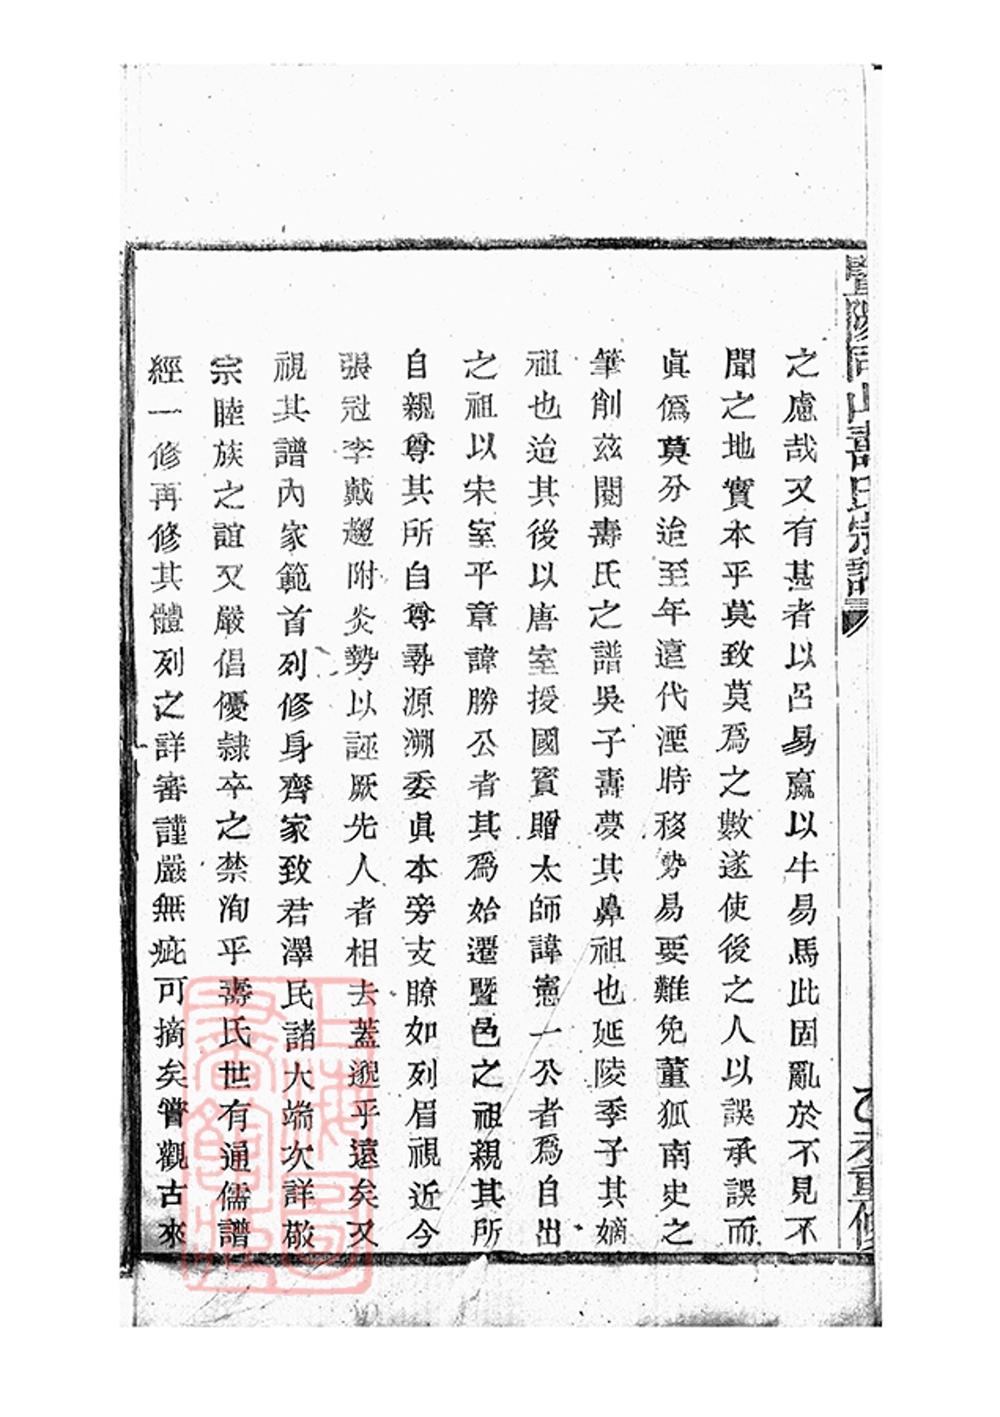 暨陽同山壽氏宗譜
乙亥重修
之慮哉又有甚者以呂易嬴以牛易馬此固亂於不見不
聞之地實本乎莫致莫爲之數遂使後之人以誤承誤而
眞僞莫分迨至年遠代湮時移勢易要難免董狐南史之
筆削茲閱壽氏之譜吳子壽夢其鼻祖也延陵季子其嫡
祖也迨其後以唐室授國賓贈太師諱寭一公者爲自出
之祖以宋室平章諱勝公者其爲始遷暨邑之祖親其所
自親尊其所自尊尋源溯委眞本旁支瞭如列眉視近今
張冠李戴趨附炎勢以誣厥先人者相去蓋邈乎遠矣又
視其譜內家範首列修身齊家致君澤民諸大端次詳敬
宗睦族之誼又嚴倡優隸卒之禁洵乎壽氏世有通儒譜
經一修再修其體列之詳審謹嚴無疵可摘矣嘗觀古來
上海圖書館藏